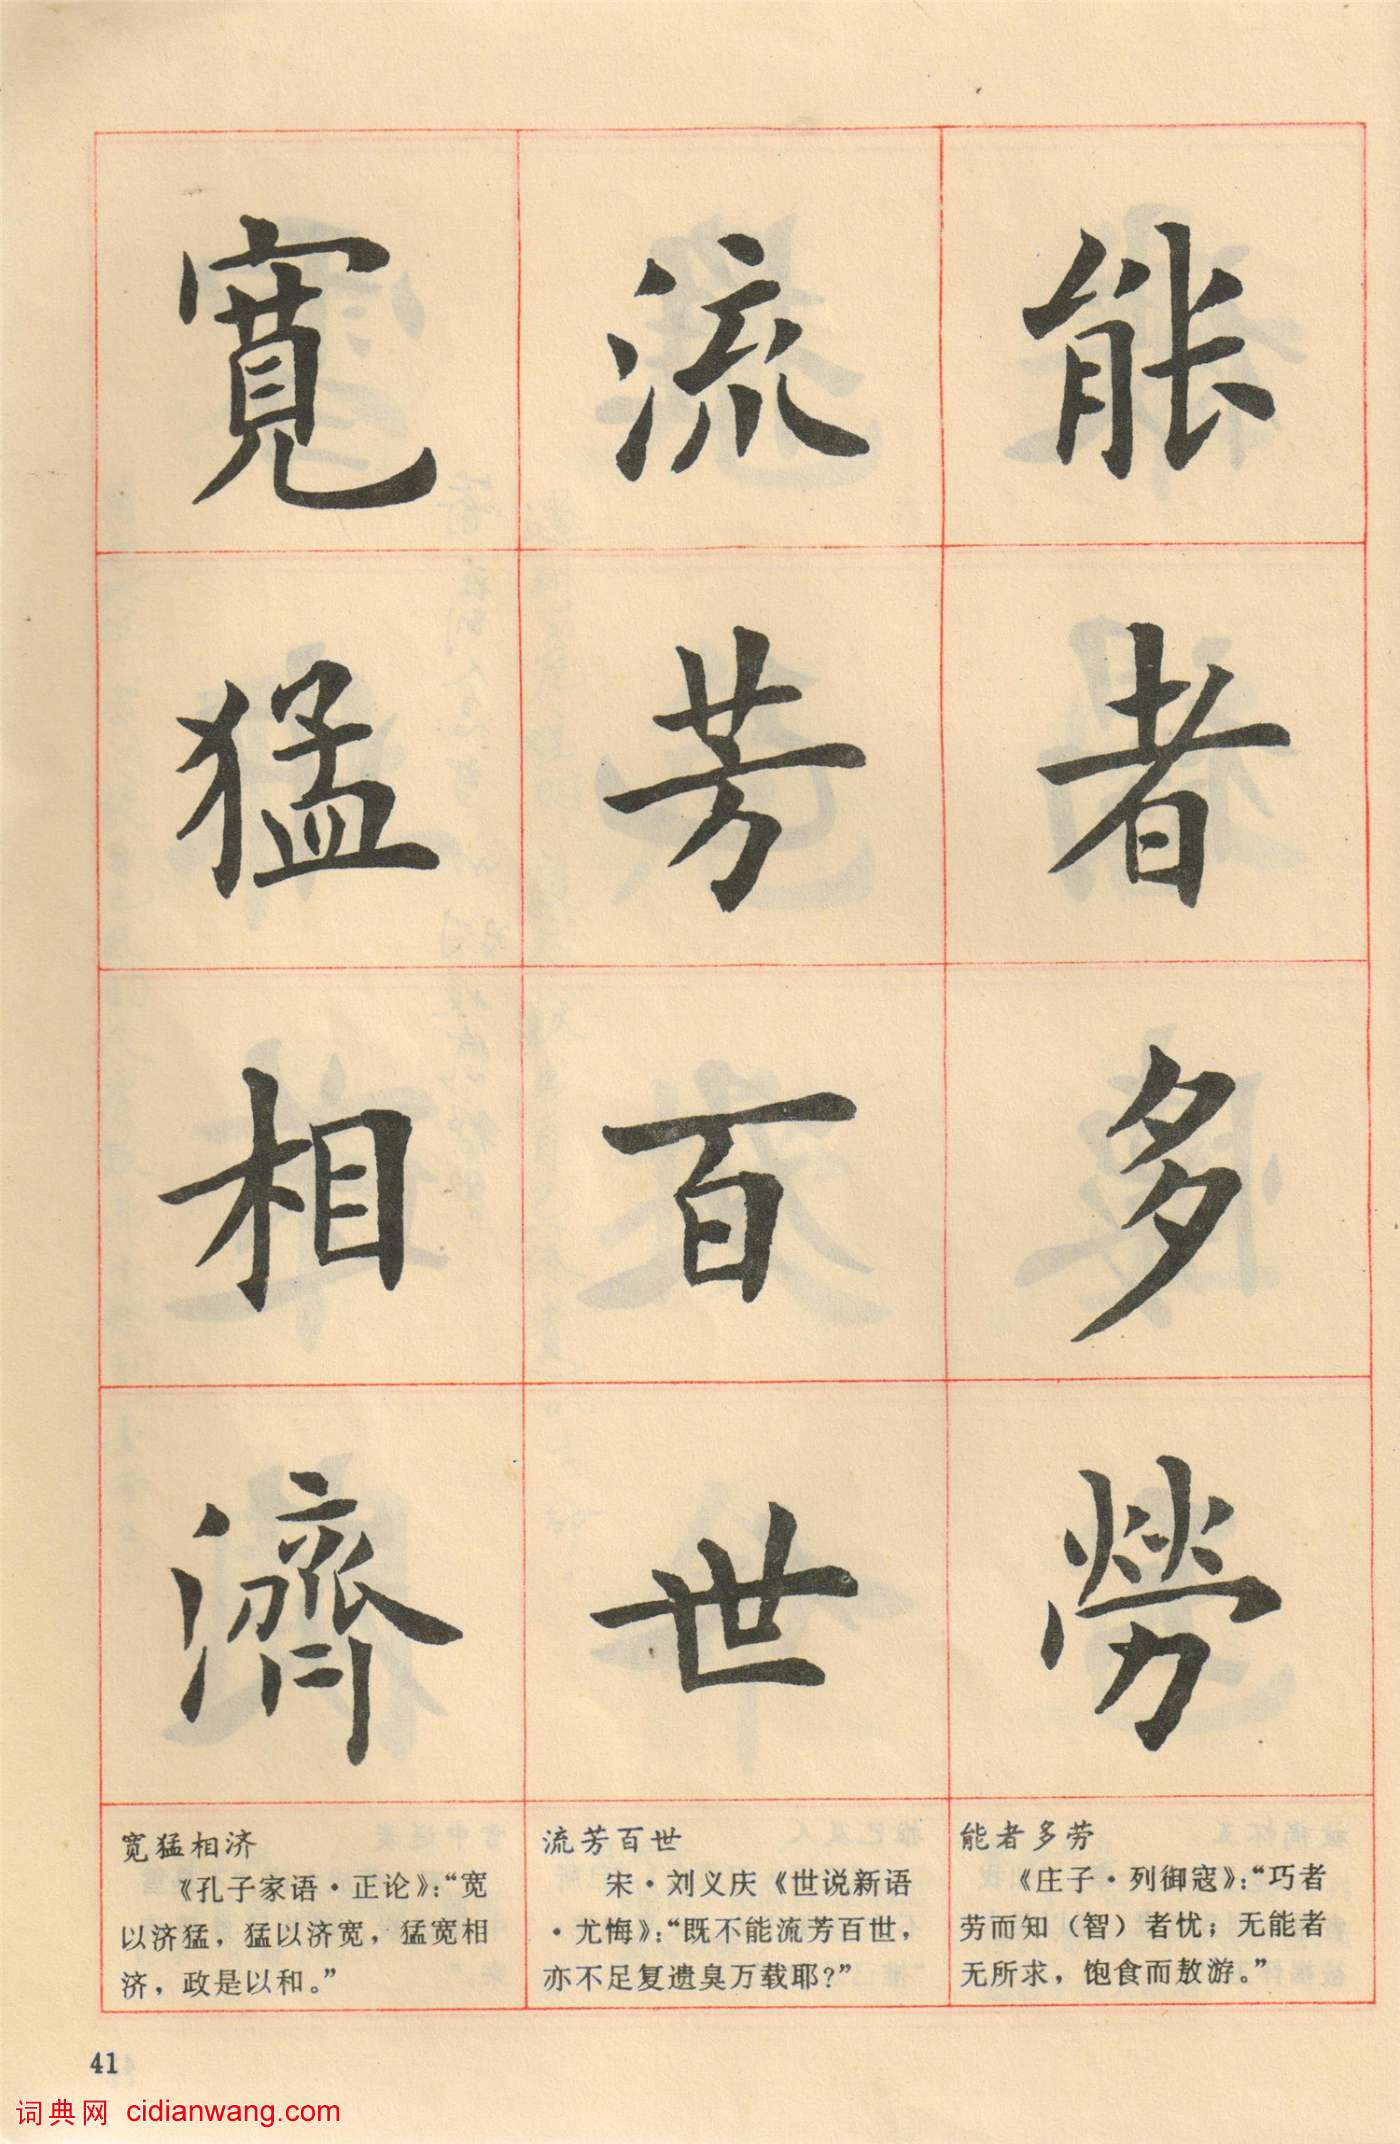 能
者
多
勞
流
芳
百
世
寬
猛
相
濟
能者多劳
《庄子·列御寇》：“巧者
劳而知（智）者忧；无能者
无所求，饱食而敖游。”
流芳百世
宋·刘义庆《世说新语
·尤悔》：“既不能流芳百世，
亦不足复遗臭万载耶？”
宽猛相济
《孔子家语·正论》：“宽
以济猛，猛以济宽，猛宽相
济，政是以和。”
41
词典网 cidianwang.com